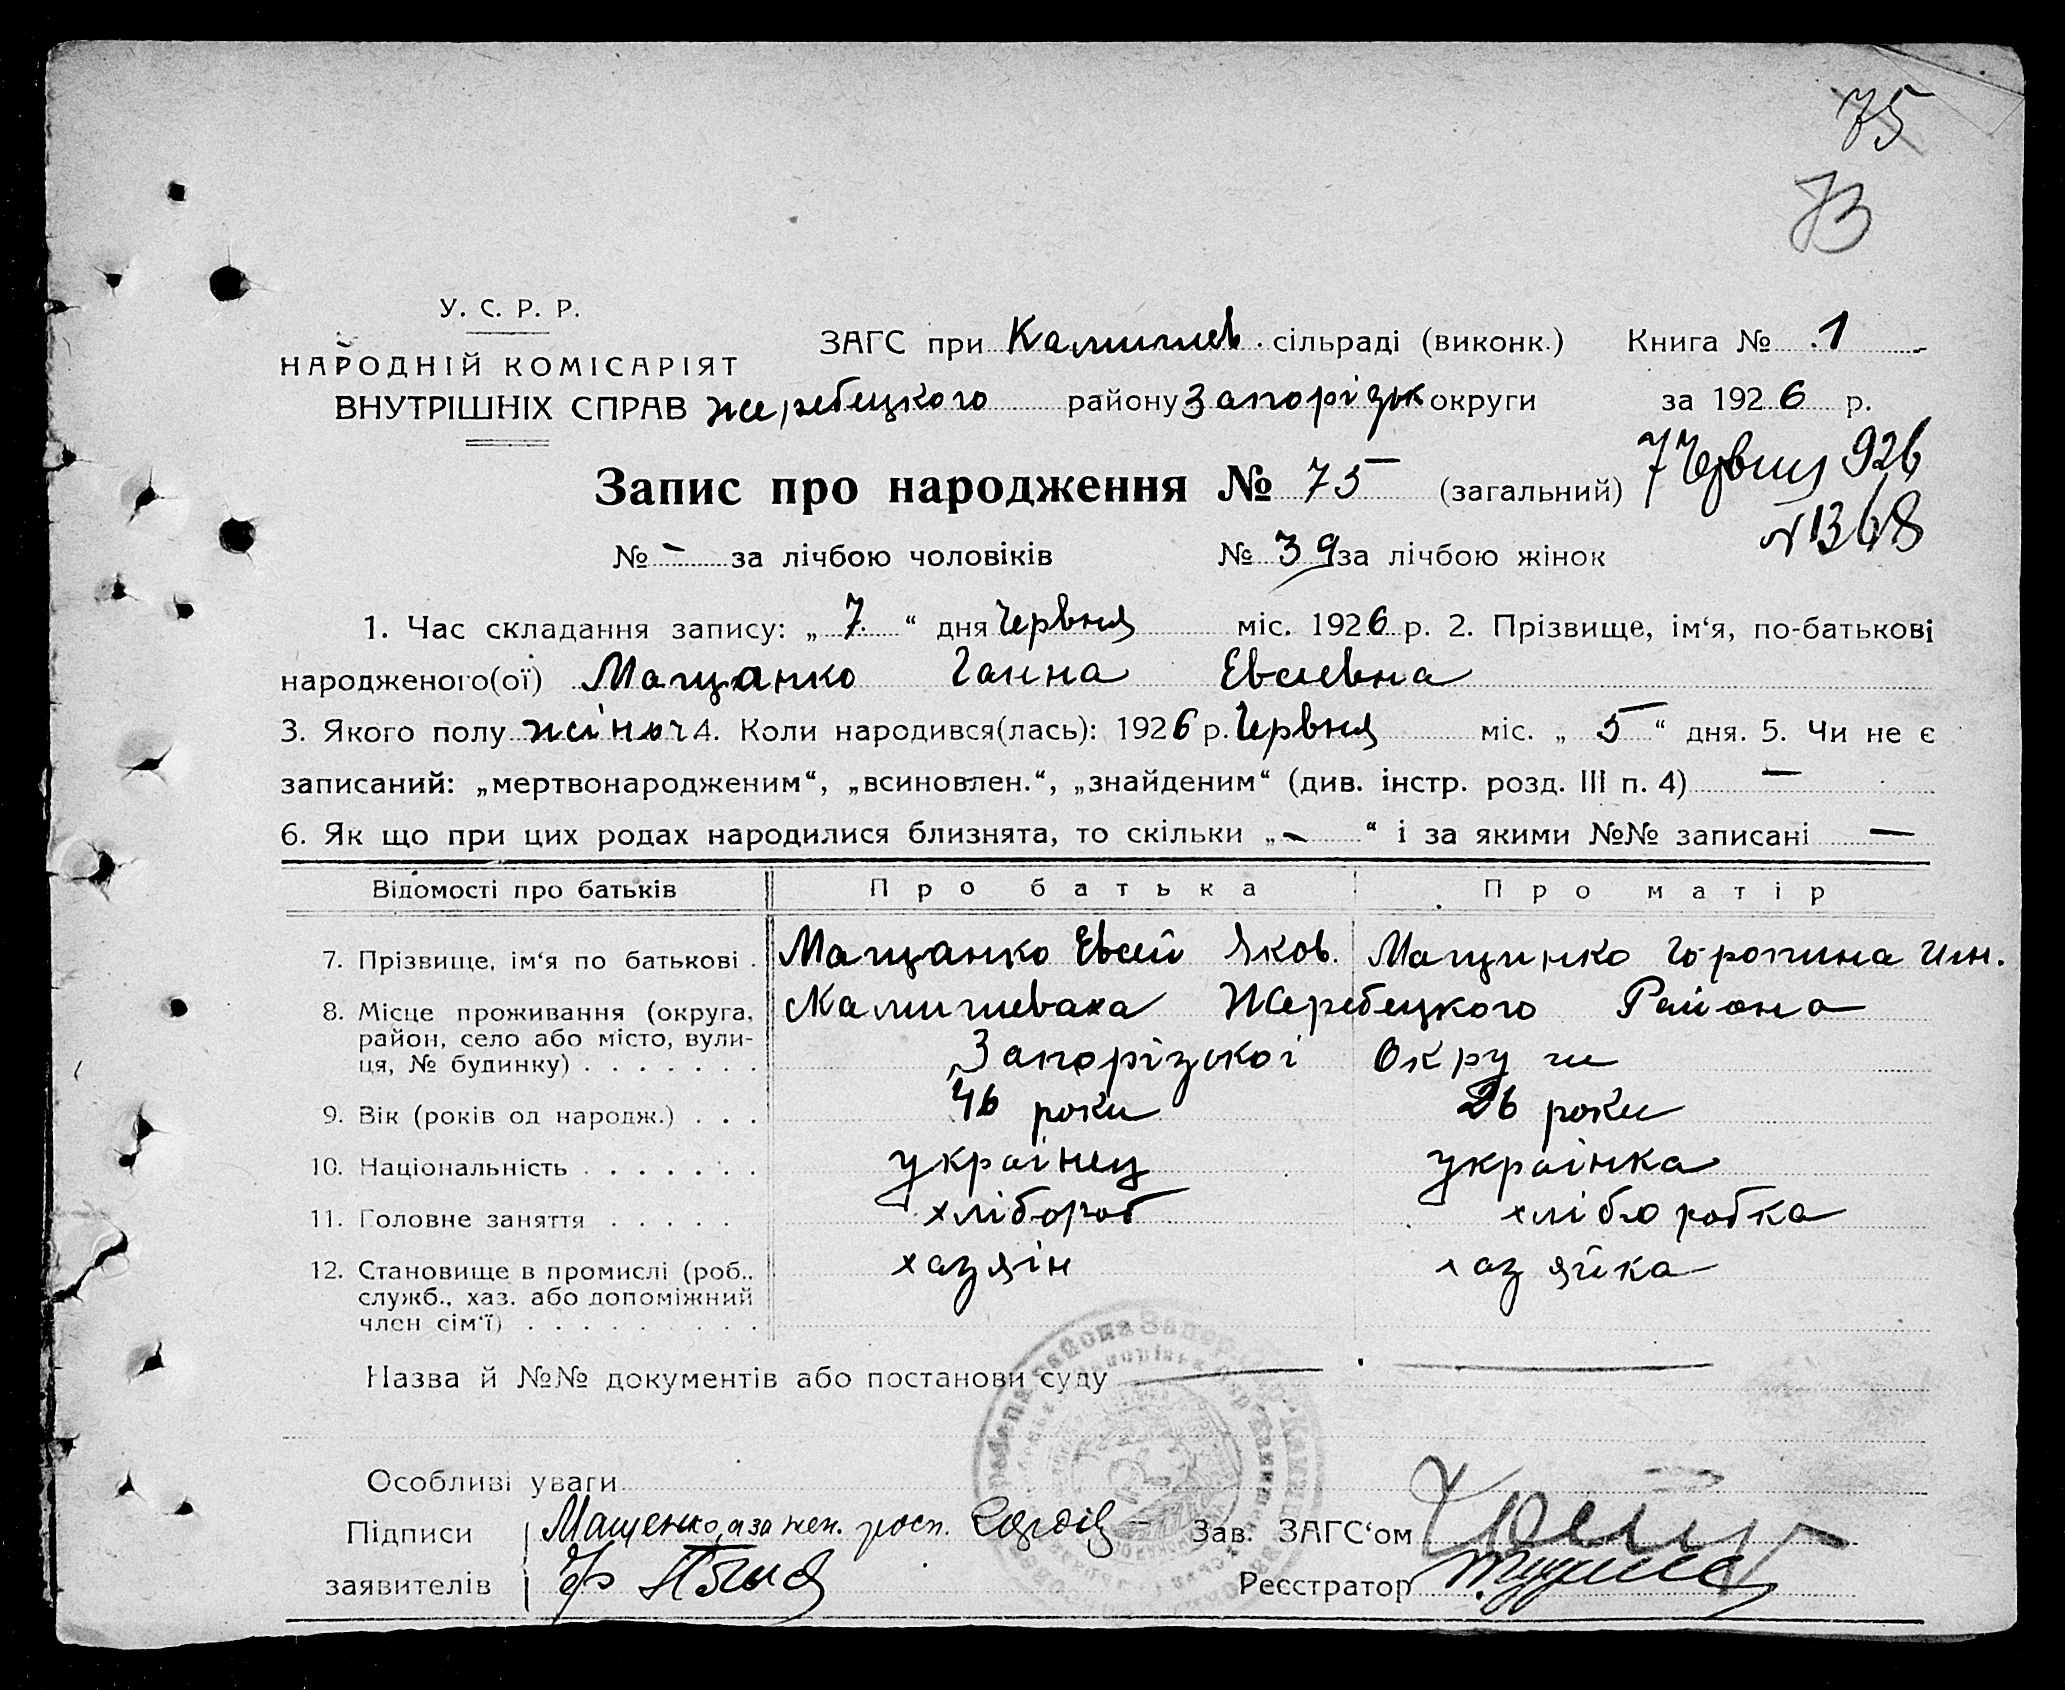 75
73
У. С. Р. Р.
НАРОДНІЙ КОМІСАРІЯТ
ВНУТРІШНІХ СПРАВ
ЗАГС при Камишев. сільраді (виконк.) Книга № 1
Жеребецкого району Запорізьк округи за 1926 р.
Запис про народження № 75 (загальний) 7 Червня 926
№ 1368
№ - за лічбою чоловіків № 39 за лічбою жінок
1. Час складання запису: „ 7 “ дня Червня міс. 1926 р. 2. Прізвище, ім‘я, по-батькові
народженого(ої) Мащанко Ганна Евсеевна
3. Якого полу жіноч 4. Коли народився(лась): 1926 р. Червня міс. „ 5 “ дня. 5. Чи не є
записаний: „мертвонародженим“, „всиновлен.“, „знайденим“ (див. інстр. розд. III п. 4) —
6. Як що при цих родах народилися близнята, то скільки „ - “ і за якими №№ записані —
Відомості про батьків Про батька Про матір
7. Прізвище, ім‘я по батькові . Мащанко Евсей Яков. Мащинко Горопина
8. Місце проживання (округа, район, село або місто, вули-ця, № будинку) . . . . . . . Камишеваха Жеребецкого Района
Запорізскоі Округи
9. Вік (років од народж.) . . . 46 роки 26 роки
10. Національність . . . . . . . украінец украінка
11. Головне заняття . . . . . хлібороб хліборобка
12. Становище в промислі (роб., служб., хаз. або допоміжний член сім‘ї) . . . . . . . . . хазяін хазяйка
Назва й №№ документів або постанови суду
Особливі уваги
Підписи Мащенко, а за неп. росп. Зав. ЗАГС‘ом
заявителів Реєстратор